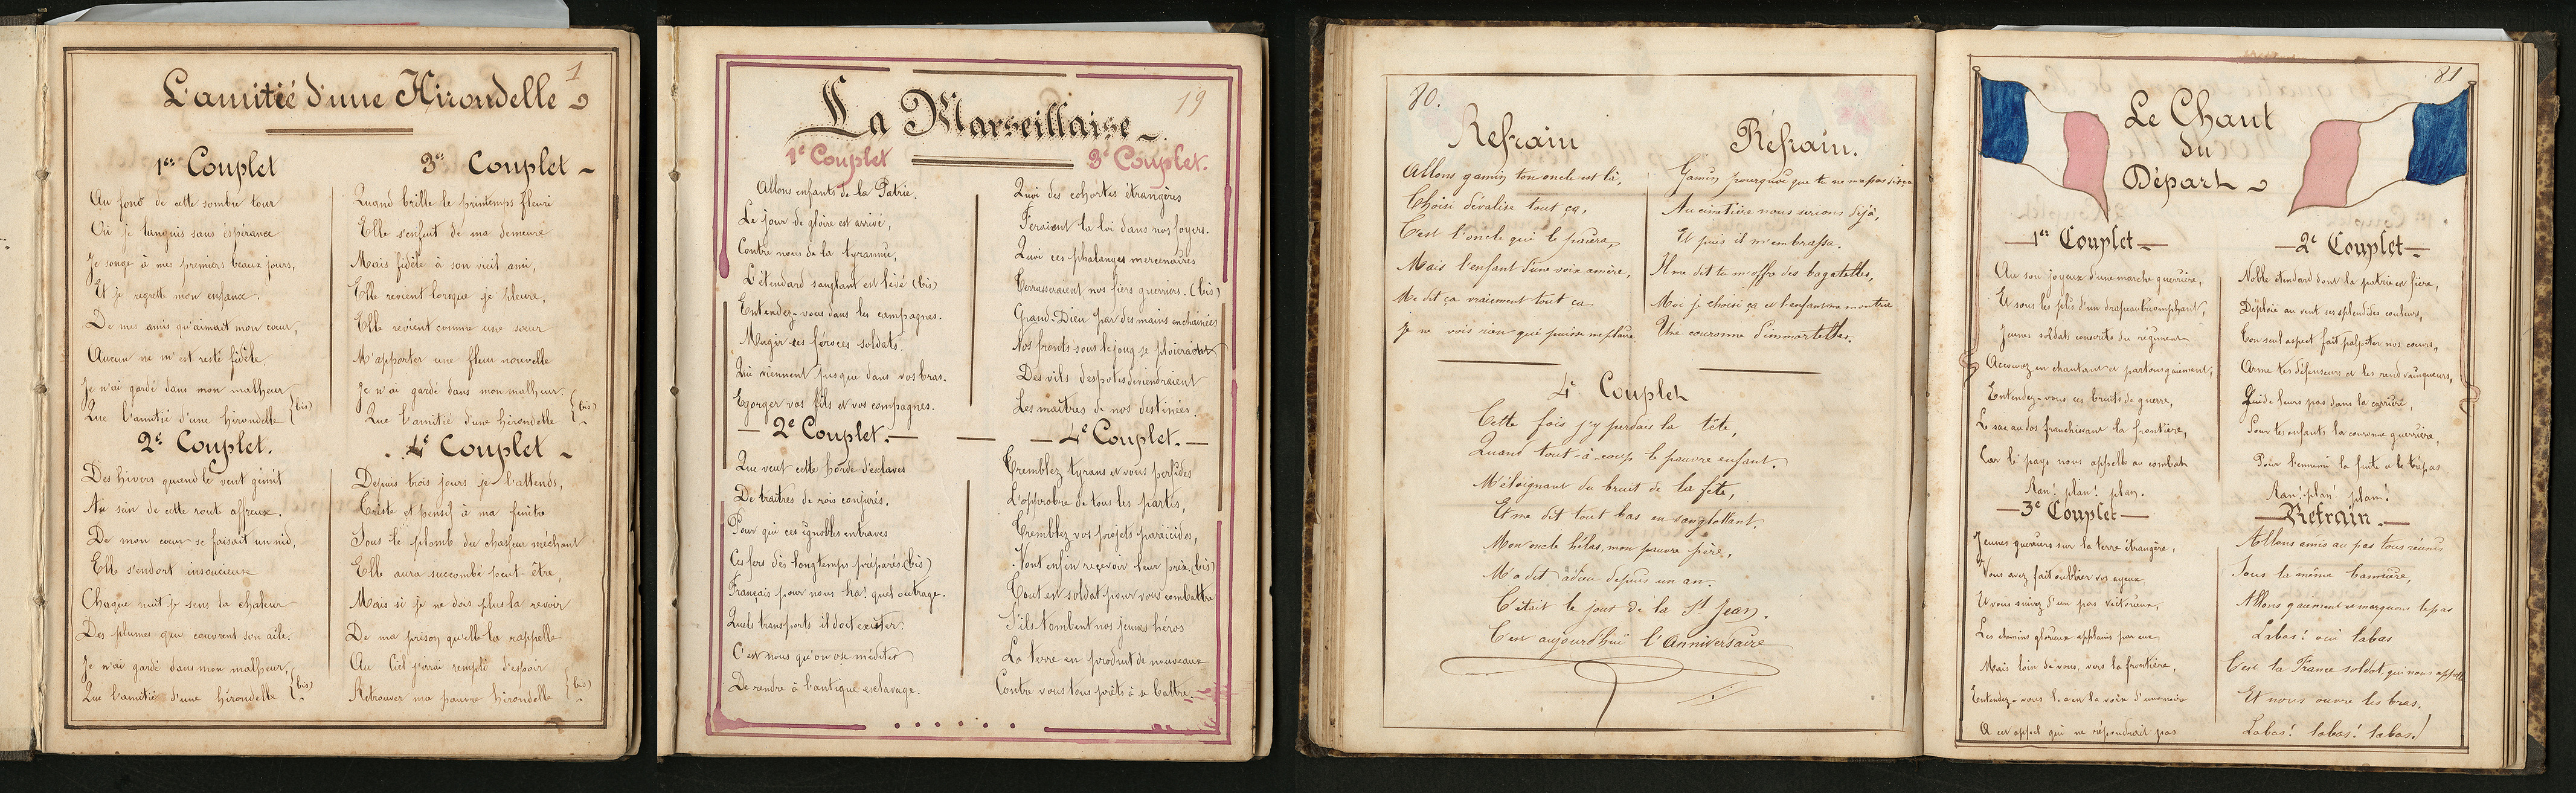 1
L'amitié d'une Hirondelle
1er Couplet
Au fond de cette sombre tour
Où je languis sans espérance
Je songe à mes premiers beaux jours,
Et je regrette mon enfance.
De mes amis qu'aimait mon cœur,
Aucun ne m'est resté fidèle
Je n'ai gardé dans mon malheur
Que l'amitié d'une hirondelle (bis)
2e Couplet.
Des hivers quand le vent gémit
Au sein de cette route affreuse.
De mon cœur se faisait un nid,
Elle s'endort insoucieuse
Chaque nuit je sens la chaleur
Des plumes qui couvrent son aile.
Je n'ai gardé dans mon malheur,
Que l'amitié d'une hirondelle (bis)
3e Couplet
Quand brille le printemps fleuri
Elle s'enfuit de ma demeure
Mais fidèle à son vieil ami,
Elle revient lorsque je pleure,
Elle revient comme une sœur
M'apporter une fleur nouvelle
Je n'ai gardé dans mon malheur.
Que l'amitié d'une hirondelle (bis)
4e Couplet
Depuis trois jours je l'attends,
Triste et pensif à ma fenêtre
Sous le plomb du chasseur méchant
Elle aura succombé peut-être,
Mais si je ne dois plus la revoir
De ma prison qu'elle la rappelle
Au Ciel j'irai rempli d'espoir
Retrouver ma pauvre hirondelle (bis)
19
La Marseillaise
1e Couplet
Allons enfants de la Patrie.
Le jour de gloire est arrivé,
Contre nous de la tyrannie,
L'étendard sanglant est levé (bis)
Entendez-vous dans les campagnes.
Mugir ces féroces soldats.
Qui viennent jusque dans vos bras.
Egorger vos fils et vos compagnes.
2e Couplet.
Que veut cette horde d'esclaves
De traîtres de rois conjurés.
Pour qui ces ignobles entraves
Ces fers dès longtemps préparés (bis)
Français pour nous ha! quel outrage.
Quels transports il doit exciter:
C'est nous qu'on ose méditer
De rendre à l'antique esclavage.
3e Couplet.
Quoi des cohortes étrangères
Feraient la loi dans nos foyers.
Quoi ces phalanges mercenaires
Terrasseraient nos fiers guerriers. (bis)
Grand-Dieu par des mains enchaînées
Nos fronts sous le joug se ploieraient
Des vils despotes deviendraient
Les maîtres de nos destinées.
4e Couplet.
Tremblez tyrans et vous perfides
L'opprobre de tous les partis,
Tremblez vos projets paricides,
Vont enfin recevoir leur prix (bis)
Tout est soldat pour vous combattre
S'ils tombent nos jeunes héros
La terre en produit de nouveaux
Contre vous tous prêts à se battre.
80.
Refrain
Allons gamin ton oncle est là,
Choisi dévalise tout ça,
C'est l'oncle qui le paiera,
Mais l'enfant d'une voix amère,
Me dit ça vraiement tout ça
Je ne vois rien qui puisse me plaire
Réfrain.
Gamin pourquoi que tu ne m'a pas dis ça
Au cimetière nous serions déjà,
Et puis il m'embrassa.
Il me dit tu m'offre des bagatelles,
Moi je choisi ça et l'enfant me montra
Une couronne d'immortelles.
4e Couplet
Cette fois j'y perdais la tête,
Quand tout-à-coup le pauvre enfant.
M'éloignant du bruit de la fête,
Et me dit tout bas en sanglottant.
Mon oncle hélas, mon pauvre père,
M'a dit adieu depuis un an.
C'était le jour de la St Jean.
C'est aujourd'hui l'anniversaire
81
Le Chant
du
Départ
1er Couplet
Au son joyeux d'une marche guerrière,
Et sous les plis d'un drapeau triomphant,
Jeunes soldats conscrits du régiment
Accourez en chantant et partons gaiement,
Entendez-vous ces bruits de guerre,
Le sac au dos franchissant la frontière,
Car le pays nous appelle au combat
Ran! plan! plan.
2e Couplet
Noble étendard dont la patrie est fière,
Déploie au vent ses splendides couleurs,
Ton seul aspect fait palpiter nos cœurs,
Arme tes défenseurs et les rend vainqueurs,
Guide leurs pas dans la carrière,
Pour tes enfants la couronne guerrière,
Pour l'ennemi la fuite ou le trépas
Ran! plan! plan!
3e Couplet
Jeunes guerriers sur la terre étrangère,
Vous avez fait oublier vos ayeux
Et vous suivez d'un pas victorieux,
Les chemins glorieux applanis par eux
Mais loin de vous, vers la frontière,
Entendez-vous la voix d'une mère
A cet appel qui ne répondrait pas
Refrain.
Allons amis au pas tous réunis
Sous la même bannière,
Allons gaiement et marquons le pas
Labas! oui labas
C'est la France soldat, qui nous appelle
Et nous ouvre les bras,
Labas! labas! labas!